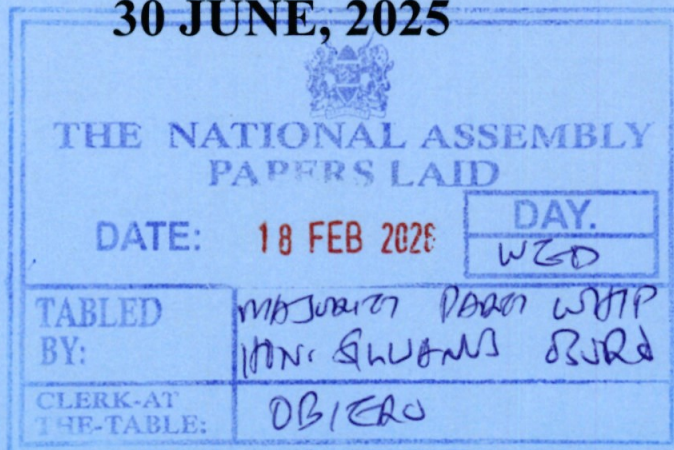 30 JUNE, 2025
THE NATIONAL ASSEMBLY
PAPERS LAID
DATE: 18 FEB 2026 DAY.
WED
TABLED BY: MAJORITY PARTY WHIP
HON. SILVANUS OSORO
CLERK-AT THE-TABLE: OBIERO